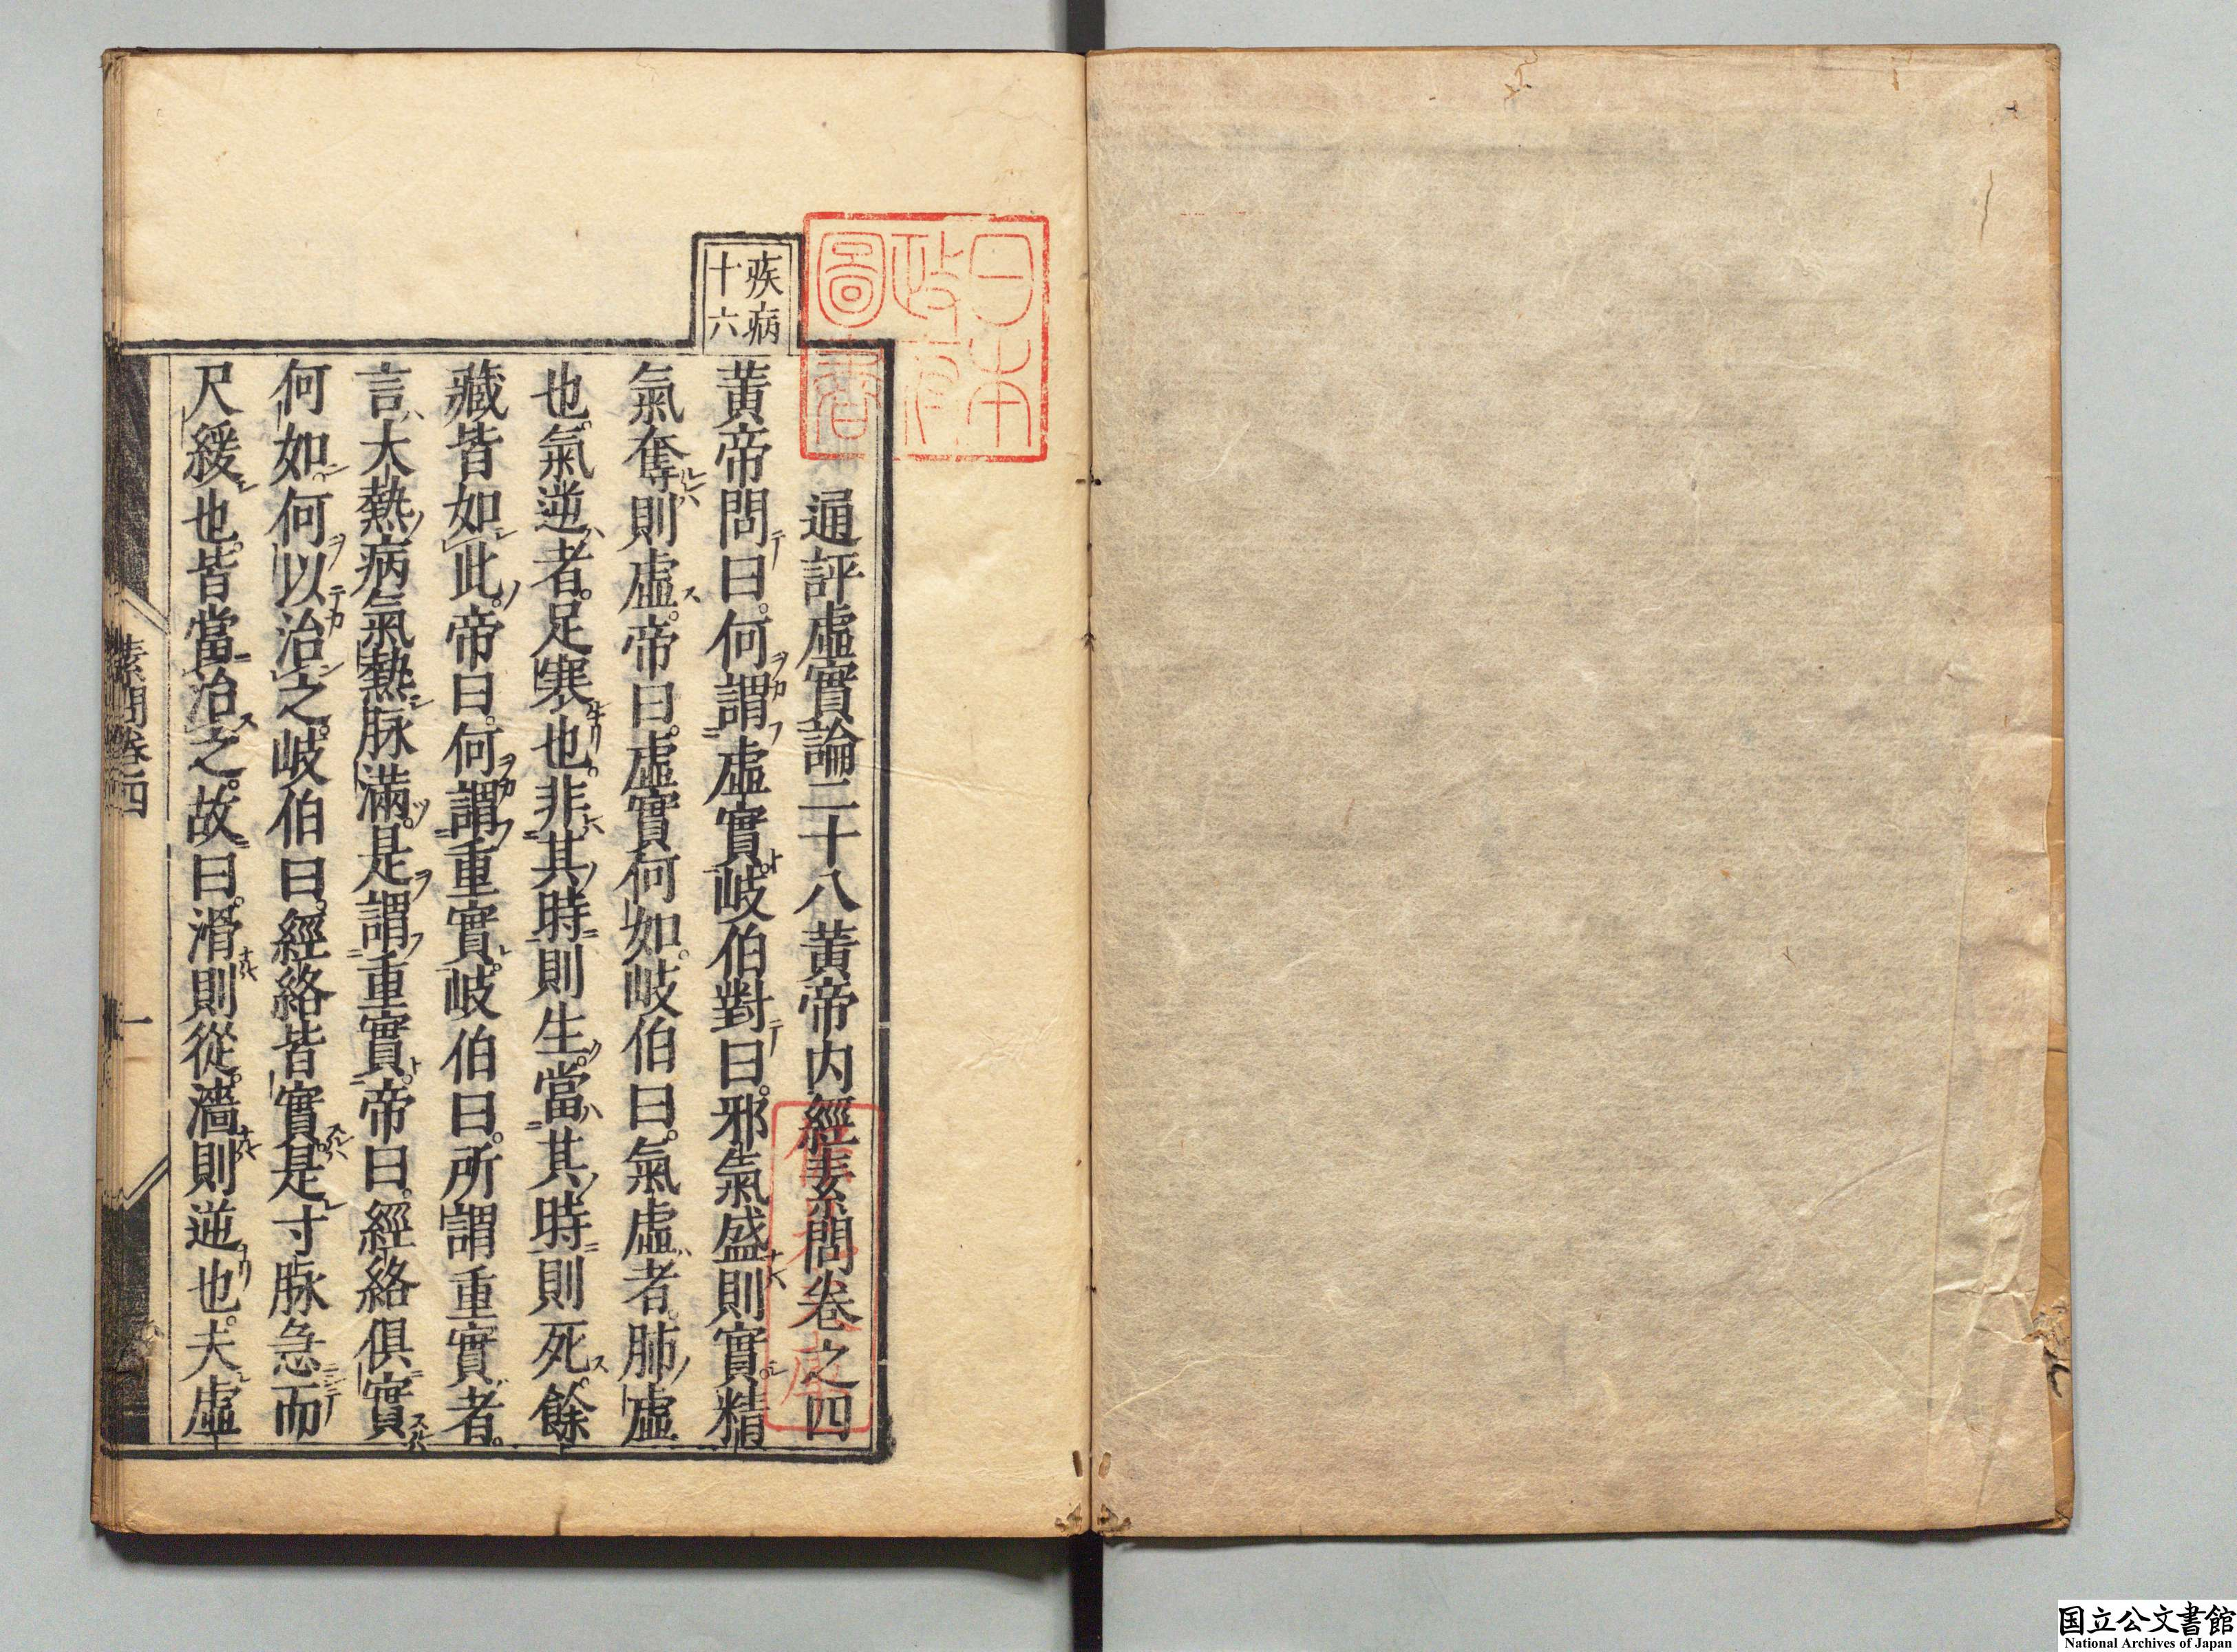 日本
政府
圖書
疾病
十六
通評虛實論二十八 黃帝內經素問卷之四
黃帝問曰。何謂虛實。岐伯對曰。邪氣盛則實。精
氣奪則虛。帝曰。虛實何如。岐伯曰。氣虛者。肺虛
也。氣逆者。足寒也。非其時則生。當其時則死。餘
藏皆如此。帝曰。何謂重實。岐伯曰。所謂重實者。
言大熱病氣熱脉滿。是謂重實。帝曰。經絡俱實
何如。何以治之。岐伯曰。經絡皆實。是寸脉急而
尺緩也。皆當治之。故曰。滑則從。濇則逆也。夫虛
素問卷四
一
国立公文書館
National Archives of Japan